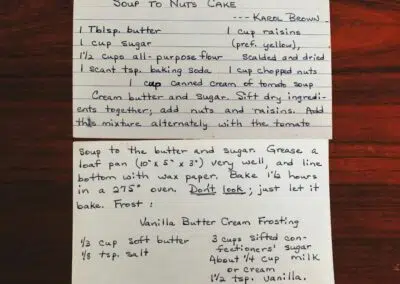 Soup To Nuts Cake
--- Karol Brown
1 Tblsp. butter 1 cup raisins
1 cup sugar (pref. yellow),
1½ cups all-purpose flour scalded and dried
1 scant tsp. baking soda 1 cup chopped nuts
1 cup canned cream of tomato soup
Cream butter and sugar. Sift dry ingredi-
ents together; add nuts and raisins. Add
this mixture alternately with the tomato
soup to the butter and sugar. Grease a
loaf pan (10" x 5" x 3") very well, and line
bottom with wax paper. Bake 1½ hours
in a 275° oven. Don't look; just let it
bake. Frost:
Vanilla Butter Cream Frosting
⅓ cup soft butter 3 cups sifted con-
⅛ tsp. salt fectioners' sugar
About ¼ cup milk
or cream
1½ tsp. vanilla.